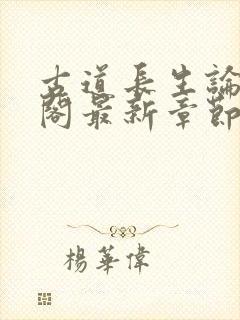 古道長生論
閣最新章節
楊華偉